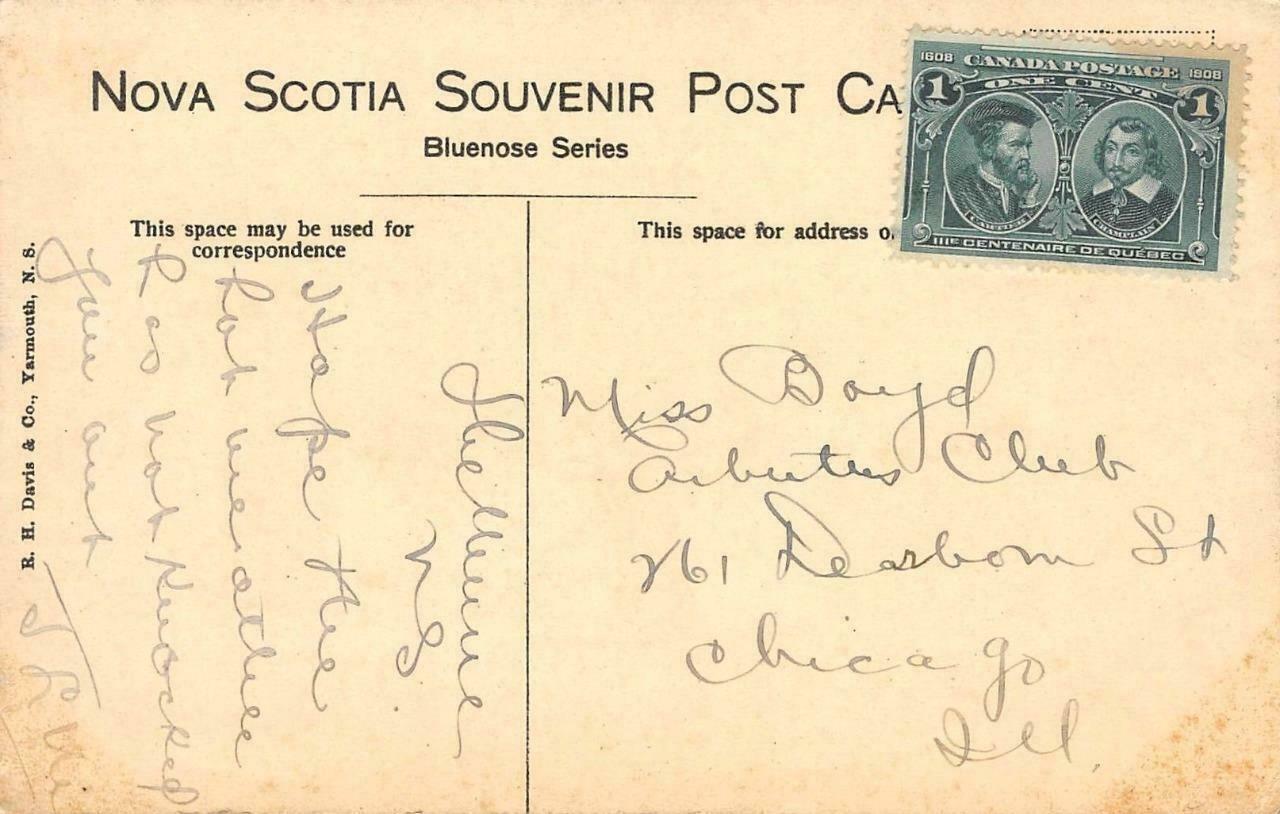 NOVA SCOTIA SOUVENIR POST CA
Bluenose Series
1608 CANADA POSTAGE 1908
ONE CENT
1 1
CARTIER CHAMPLAIN
IIIE CENTENAIRE DE QUÉBEC
This space may be used for
correspondence
This space for address o
R. H. Davis & Co., Yarmouth, N. S.
N S.
Hope the
hot weather
has not knocked
you out
Miss Boyd
Arbutus Club
761 Dearborn St
Chicago
Ill.